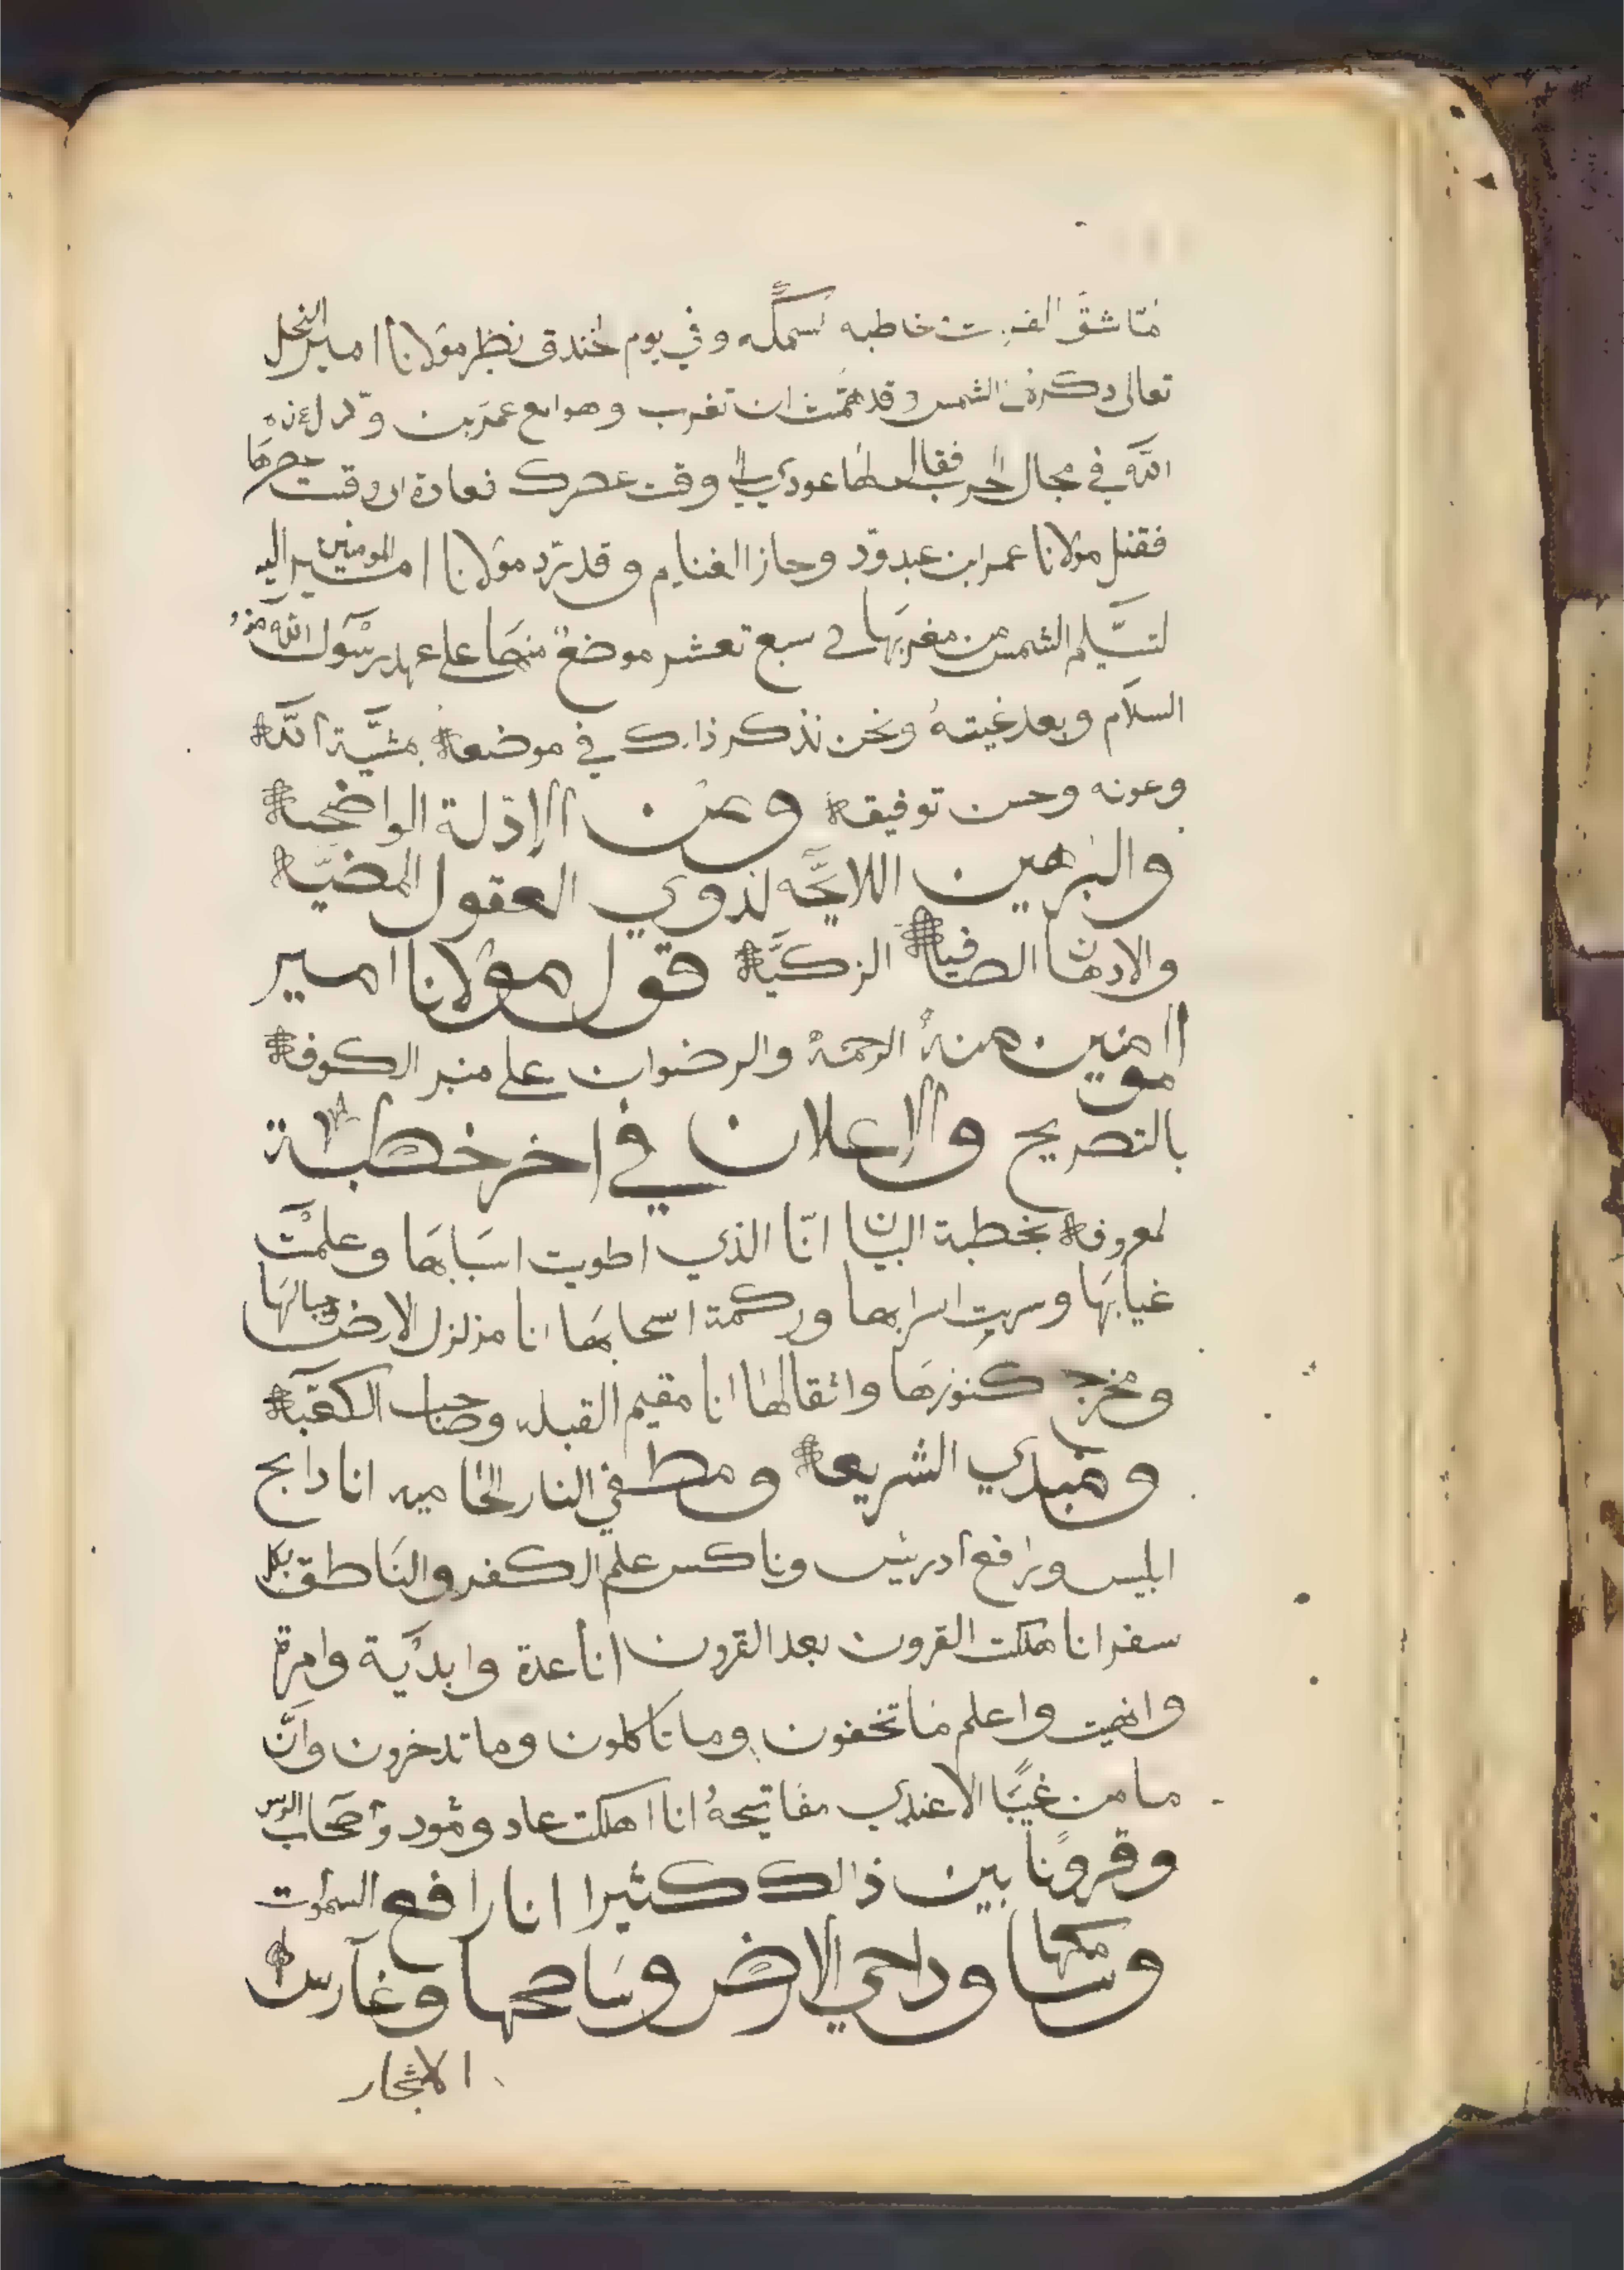 متا شق الفرت خاطبه سمكه وفي يوم خندق نظر مولانا امير النحل
تعالى دكره الشمس وقد همّت ان تغرب وهو امع عمر بن ودّ
اللَّه في مجال الحرب فقال لها عودي الي وقت عصرك فعادة الى وقت عصرها
فقتل مولانا عمر ابن عبد ودّ وحاز الغنايم وقد تردّ مولانا امير المومنين اليه
لتسلّم الشمس من مغربها في سبع تعشر موضع منها على عهد رسول اللّه منه
السلام وبعد غيبته ونحن نذكر ذالك في موضعة بمشيّة اللّه
وعونه وحسن توفيقة وعن الادلة الواضحية
والبرهين اللائحّه لذوي العقول المضيّة
والادهان الصافية الزكيّة قول مولانا امير
المومنين منهُ الرحمة والرضوان على منبر الكوفة
بالتصريح والاعلان في اخر خطبة
لمعروفة بخطبة البيان انّا الذي اطويت اسبابها وعلمت
غيابها وسربت اسرابها وركمة اسحابها انا مزلزل الارض وجبالها
ومخرج كنوزها واثقالها انا مقيم القبله وصاحب الكعبة
ومبدي الشريعة ومطفي النار الحاميه انا دابح
ابليس ورافع ادريس وناكس علم الكفر والناطق بكل
سفر انا هلكت القرون بعد القرون انا عدة وابديّة وامرة
وانهيت واعلم ما تخفون وما تاكلون وما تدخرون وانّ
ما من غيبًا الا عندي مفاتيحهُ انا اهلكت عاد وثمود واصحاب الرس
وقرونًا بين ذالك كثيرا انا رافع السموت
وسامكها وداحي الارض وساطحها وغارس
الاشجار